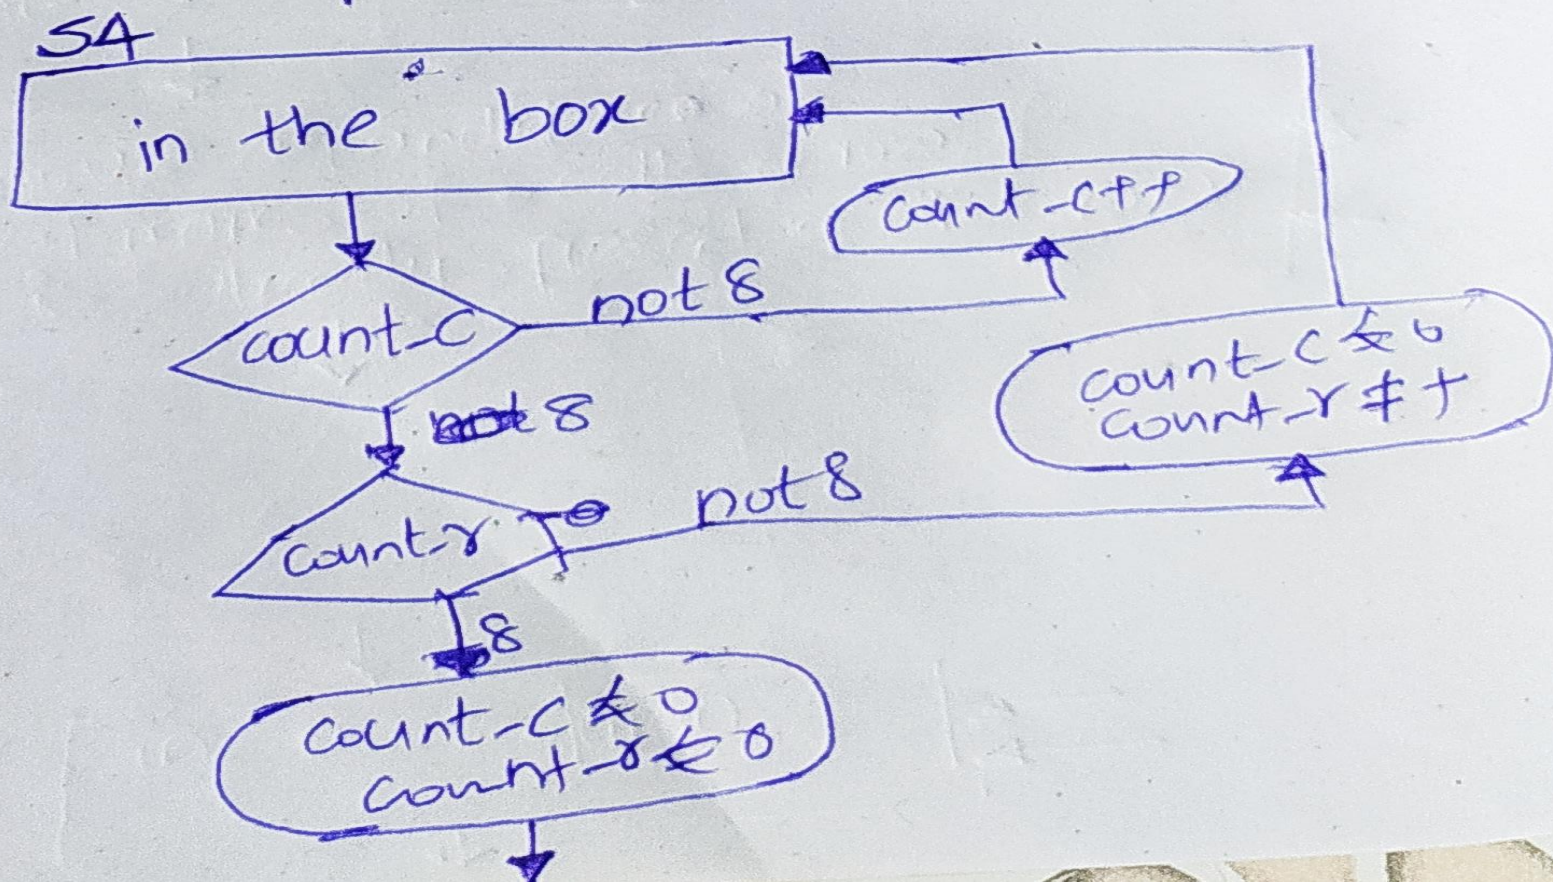 S4
in the box
count-c++
count-c
not 8
8
count-c ⇐ 0
count-r ++
count-r
not 8
8
count-c ⇐ 0
count-r ⇐ 0